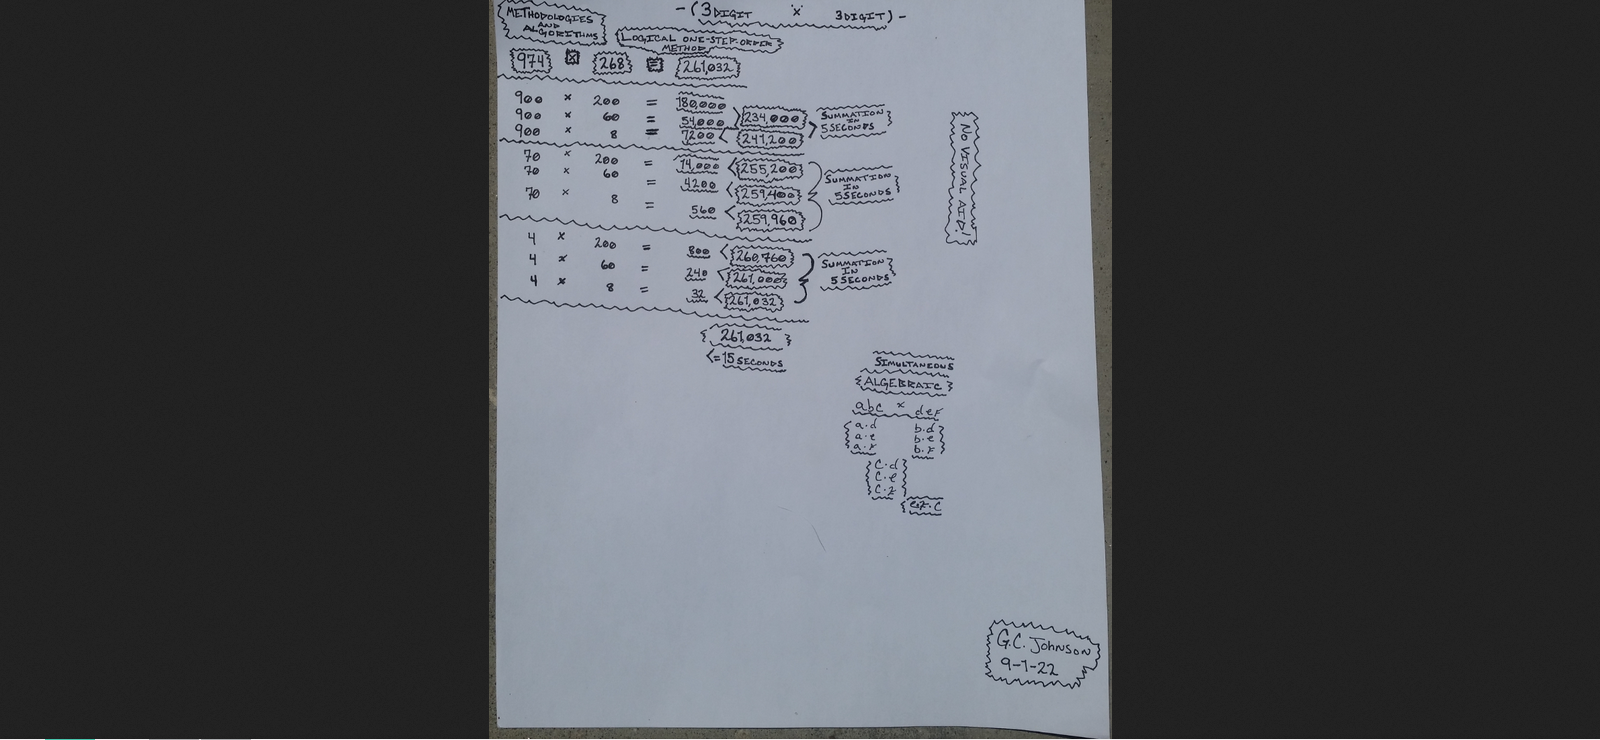 METHODOLOGIES
AND
ALGORITHMS
-(3 DIGIT × 3 DIGIT)-
LOGICAL ONE-STEP-ORDER
METHOD
974 × 268 = 261,032
900 × 200 = 180,000
900 × 60 = 54,000 234,000
900 × 8 = 7200 < 241,200
SUMMATION
IN
5 SECONDS
70 × 200 = 14,000 < 255,200
70 × 60 = 4200 < 259,400
70 × 8 = 560 < 259,960
SUMMATION
IN
5 SECONDS
4 × 200 = 800 < 260,760
4 × 60 = 240 < 261,000
4 × 8 = 32 < 261,032
SUMMATION
IN
5 SECONDS
261,032
<= 15 SECONDS
NO VISUAL AID!
SIMULTANEOUS
ALGEBRAIC
abc × def
a·d b·d
a·e b·e
a·f b·f
c·d
c·e
G.C. JOHNSON
9-1-22